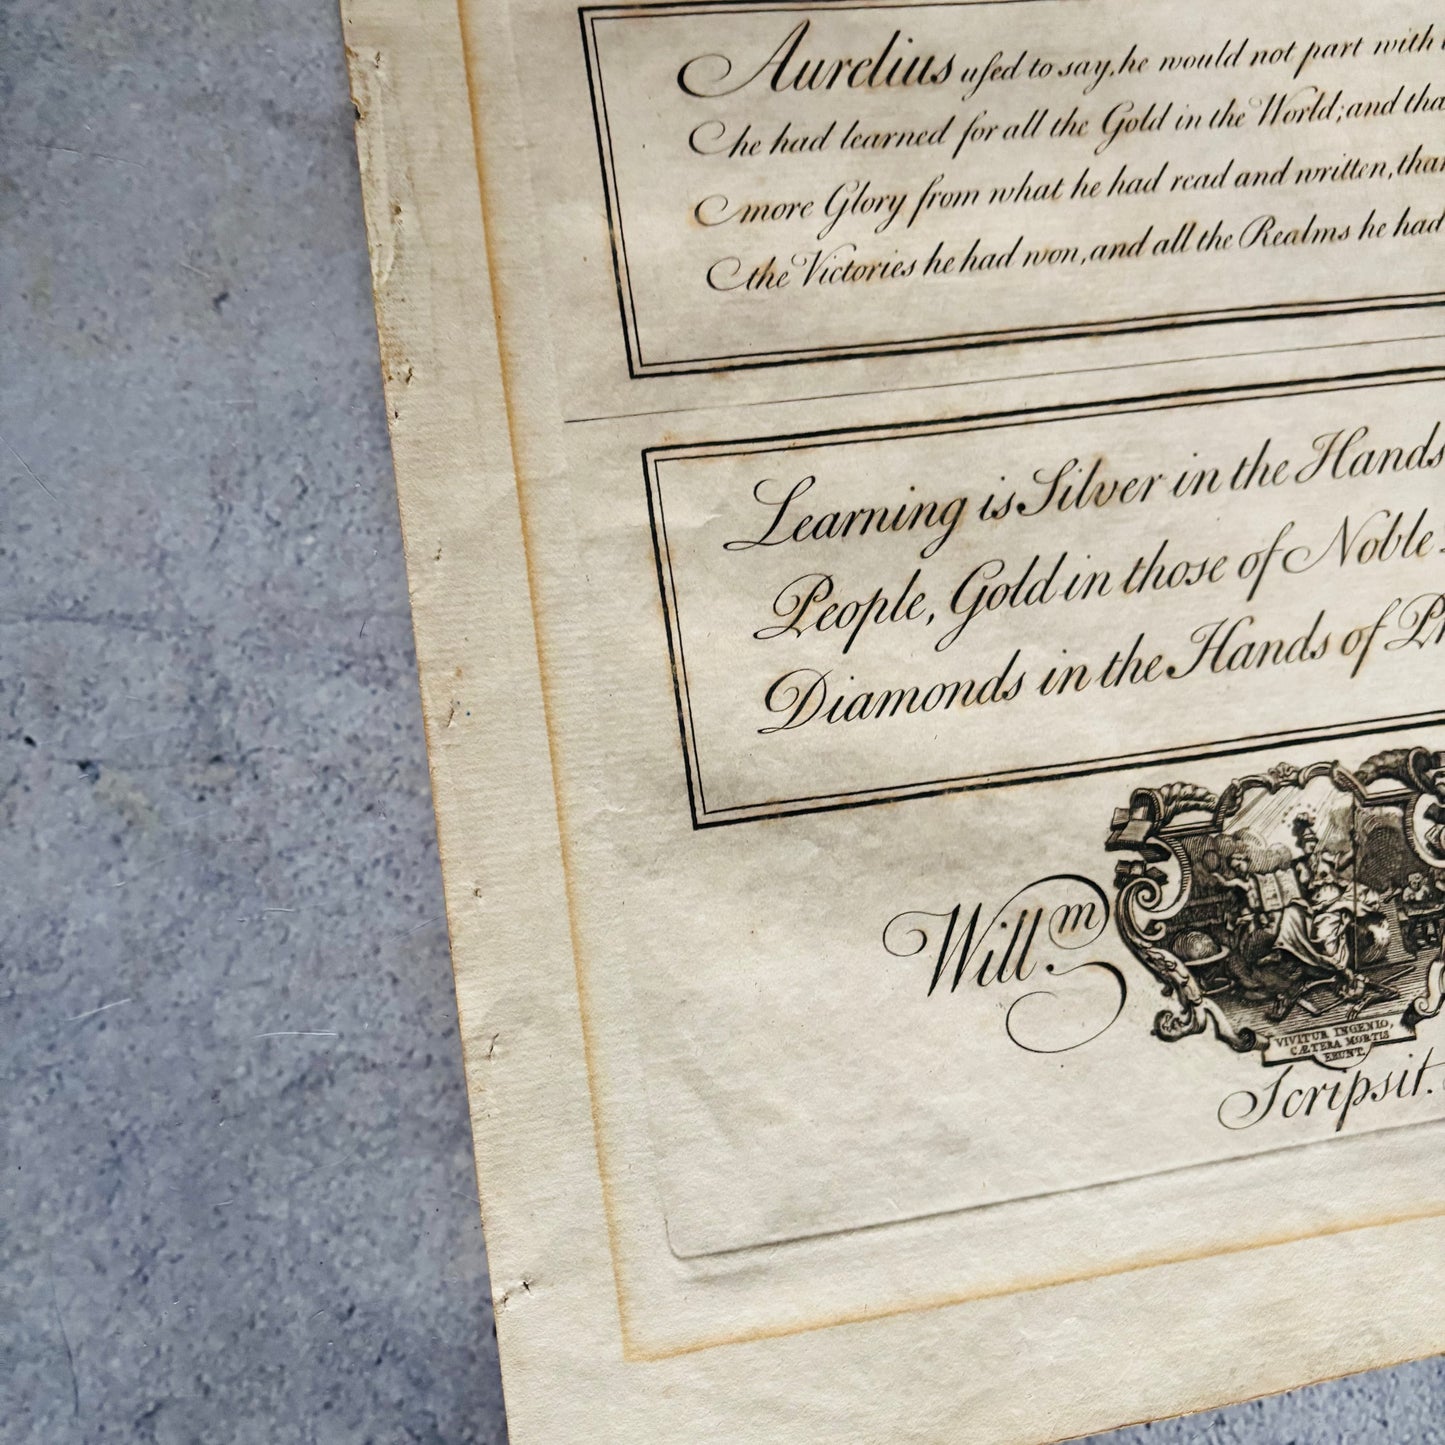 Aurelius uſed to say, he would not part with
he had learned for all the Gold in the World; and
more Glory from what he had read and written,
the Victories he had won, and all the Realms he had
Learning is Silver in the Hands
People, Gold in those of Noble
Diamonds in the Hands of
Will.m
VIVITUR INGENIO,
CÆTERA MORTIS
ERUNT.
Scripsit.